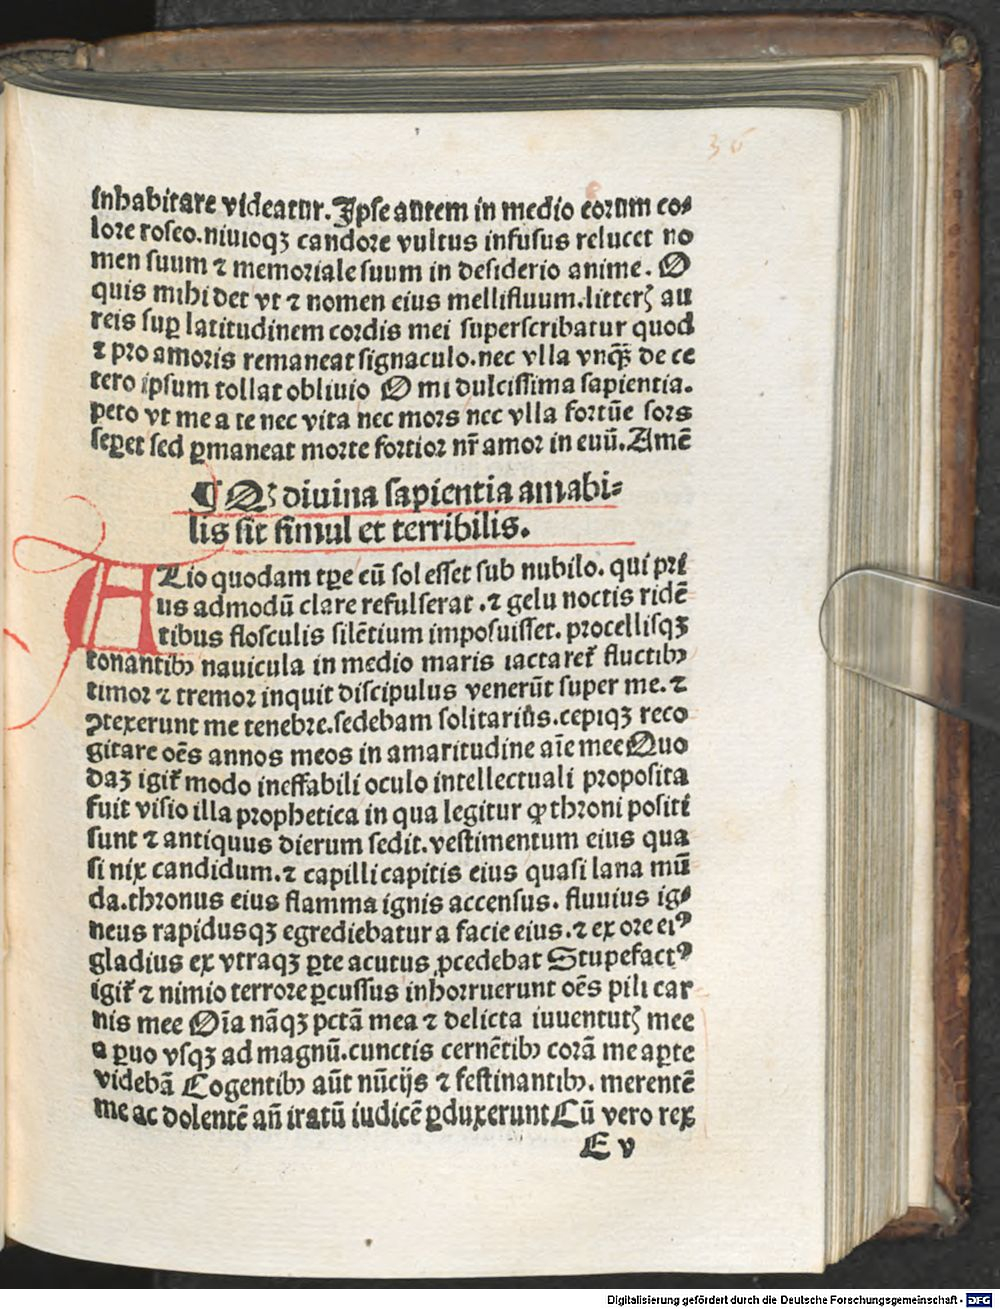 36
inhabitare videatur. Ipse autem in medio eorum co⸗
lore roseo. niuioqꝫ candore vultus infusus relucet no
men suum ⁊ memoriale suum in desiderio anime. O
quis mihi det vt ⁊ nomen eius mellifluum. litterꝭ au
reis suꝑ latitudinem cordis mei superscribatur quod
⁊ pro amoris remaneat signaculo. nec vlla vnqꝫ̄ de ce
tero ipsum tollat obliuio O mi dulcissima sapientia.
peto vt me a te nec vita nec mors nec vlla fortūe sors
seꝑet sed ꝑmaneat morte fortior nr̄ amor in euū. Amē
¶ Qꝭ diuina sapientia amabi⸗
lis sit simul et terribilis.
ALio quodam tꝑe cū sol esset sub nubilo. qui pri
us admodū clare refulserat. ⁊ gelu noctis ridē
tibus flosculis silētium imposuisset. procellisqꝫ
tonantibꝰ nauicula in medio maris iactaret᷑ fluctibꝰ
timor ⁊ tremor inquit discipulus venerūt super me. ⁊
ꝯtexerunt me tenebre. sedebam solitariūs. cepiqꝫ reco
gitare oēs annos meos in amaritudine aīe mee Quo
daꝫ igit᷑ modo ineffabili oculo intellectuali proposita
fuit visio illa prophetica in qua legitur ꝙ throni positi
sunt ⁊ antiquus dierum sedit. vestimentum eius qua
si nix candidum. ⁊ capilli capitis eius quasi lana mū
da. thronus eius flamma ignis accensus. fluuius ig⸗
neus rapidusqꝫ egrediebatur a facie eius. ⁊ ex ore eiꝰ
gladius ex vtraqꝫ ꝑte acutus ꝓcedebat Stupefactꝰ
igit᷑ ⁊ nimio terrore ꝑcussus inhorruerunt oēs pili car
nis mee Oīa nāqꝫ pctā mea ⁊ delicta iuuentutꝭ mee
a ꝑuo vsqꝫ ad magnū. cunctis cernētibꝰ corā me aꝑte
videbā Cogentibꝰ aūt nūcijs ⁊ festinantibꝰ. merentē
me ac dolentē añ iratū iudicē ꝑduxerunt Cū vero rex
E v
Digitalisierung gefördert durch die Deutsche Forschungsgemeinschaft - DFG